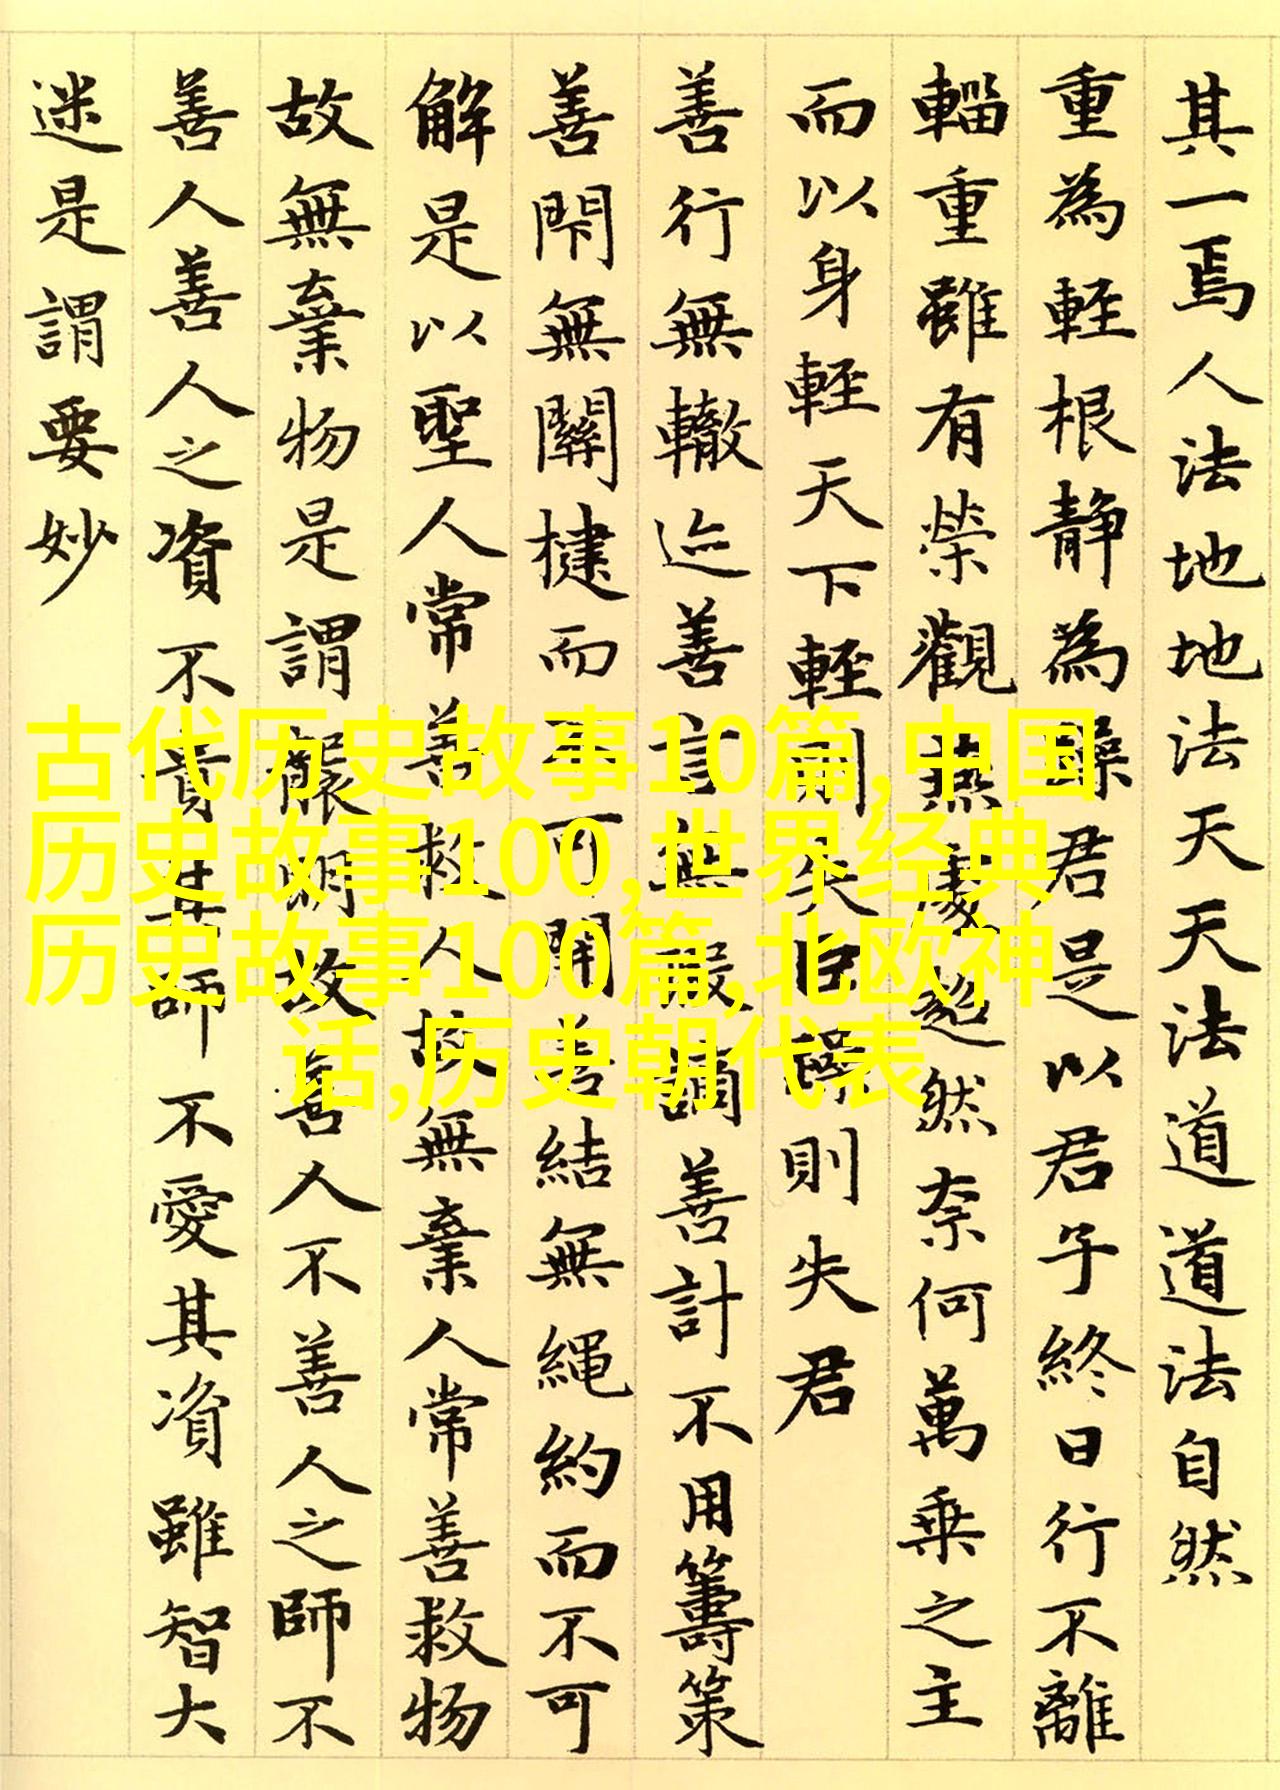 其一焉人法地地法天天法道道法自然
重為輕根靜為躁君是以君子終日行不離
輜重雖有榮觀燕處超然奈何萬乗之主
而以身輕天下輕則失臣躁則失君
善行無轍迹善言無謫善計不用籌策
善閇無關楗而不可開善結無繩約而不可
解是以聖人常善救人故無棄人常善救物
故無棄物是謂襲明故善人不善人之師不
善人善人之資不貴其師不愛其資雖智大
迷是謂要妙
古代历史故事10篇,中国
历史故事100,世界经典
历史故事100篇,北欧神
话,历史朝代表